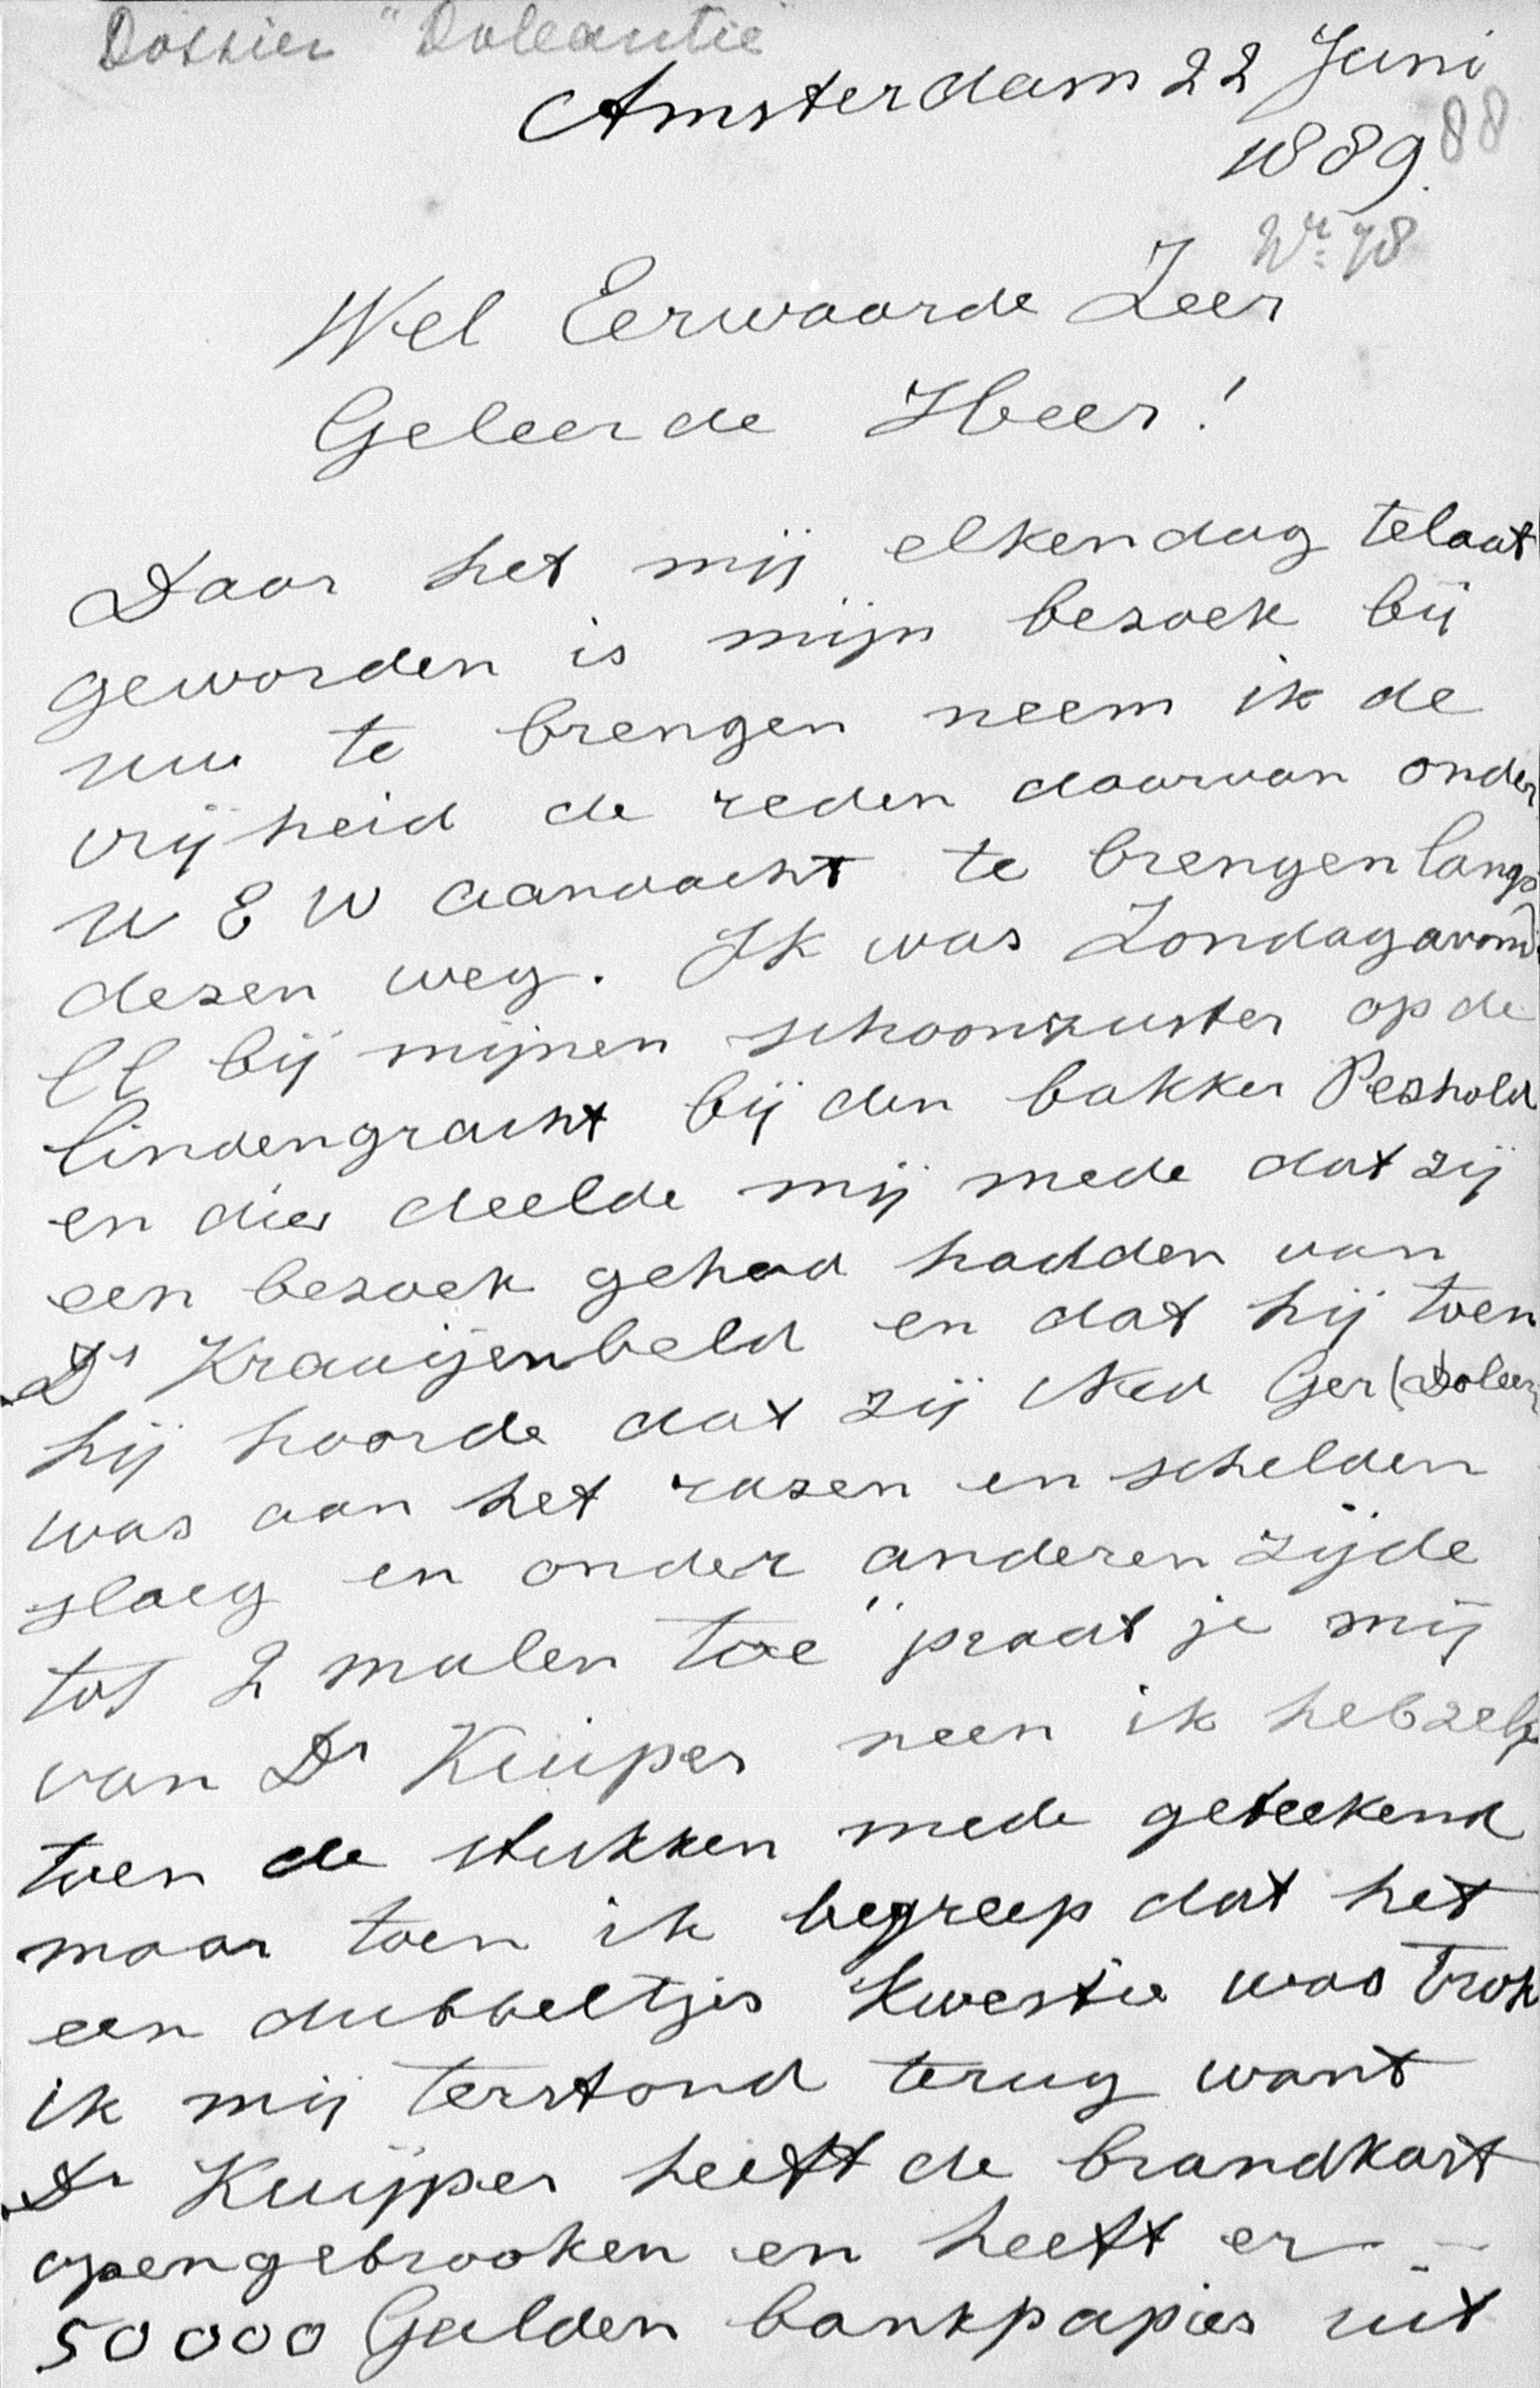 Dossier "Doleantie"
Amsterdam 22 Juni
1889.
88
Nr: 78
Wel Eerwaarde Zeer
Geleerde Heer!
Daar het mij elkendag telaat
geworden is mijn bezoek bij
uw te brengen neem ik de
vrijheid de reden daarvan onder
U E W aandacht te brengen langs
dezen weg. Ik was Zondagavond
ll bij mijnen schoonzuster op de
lindengracht bij den bakker Peshold
en die deelde mij mede dat zij
een bezoek gehad hadden van
Ds Kraaijenbeld en dat hij toen
hij hoorde dat zij Ned Ger (Doleer
was aan het razen en schelden
sloeg en onder anderen zijde
tot 2 malen toe "praat je mij
van Dr Kuiper neen ik heb zelf
toen de stukken mede geteekend
maar toen ik begreep dat het
een dubbeltjes kwestie was trok
ik mij terstond terug want
Dr Kuijper heeft de brandkast
opengebrooken en heeft er
50000 Gulden bankpapier uit